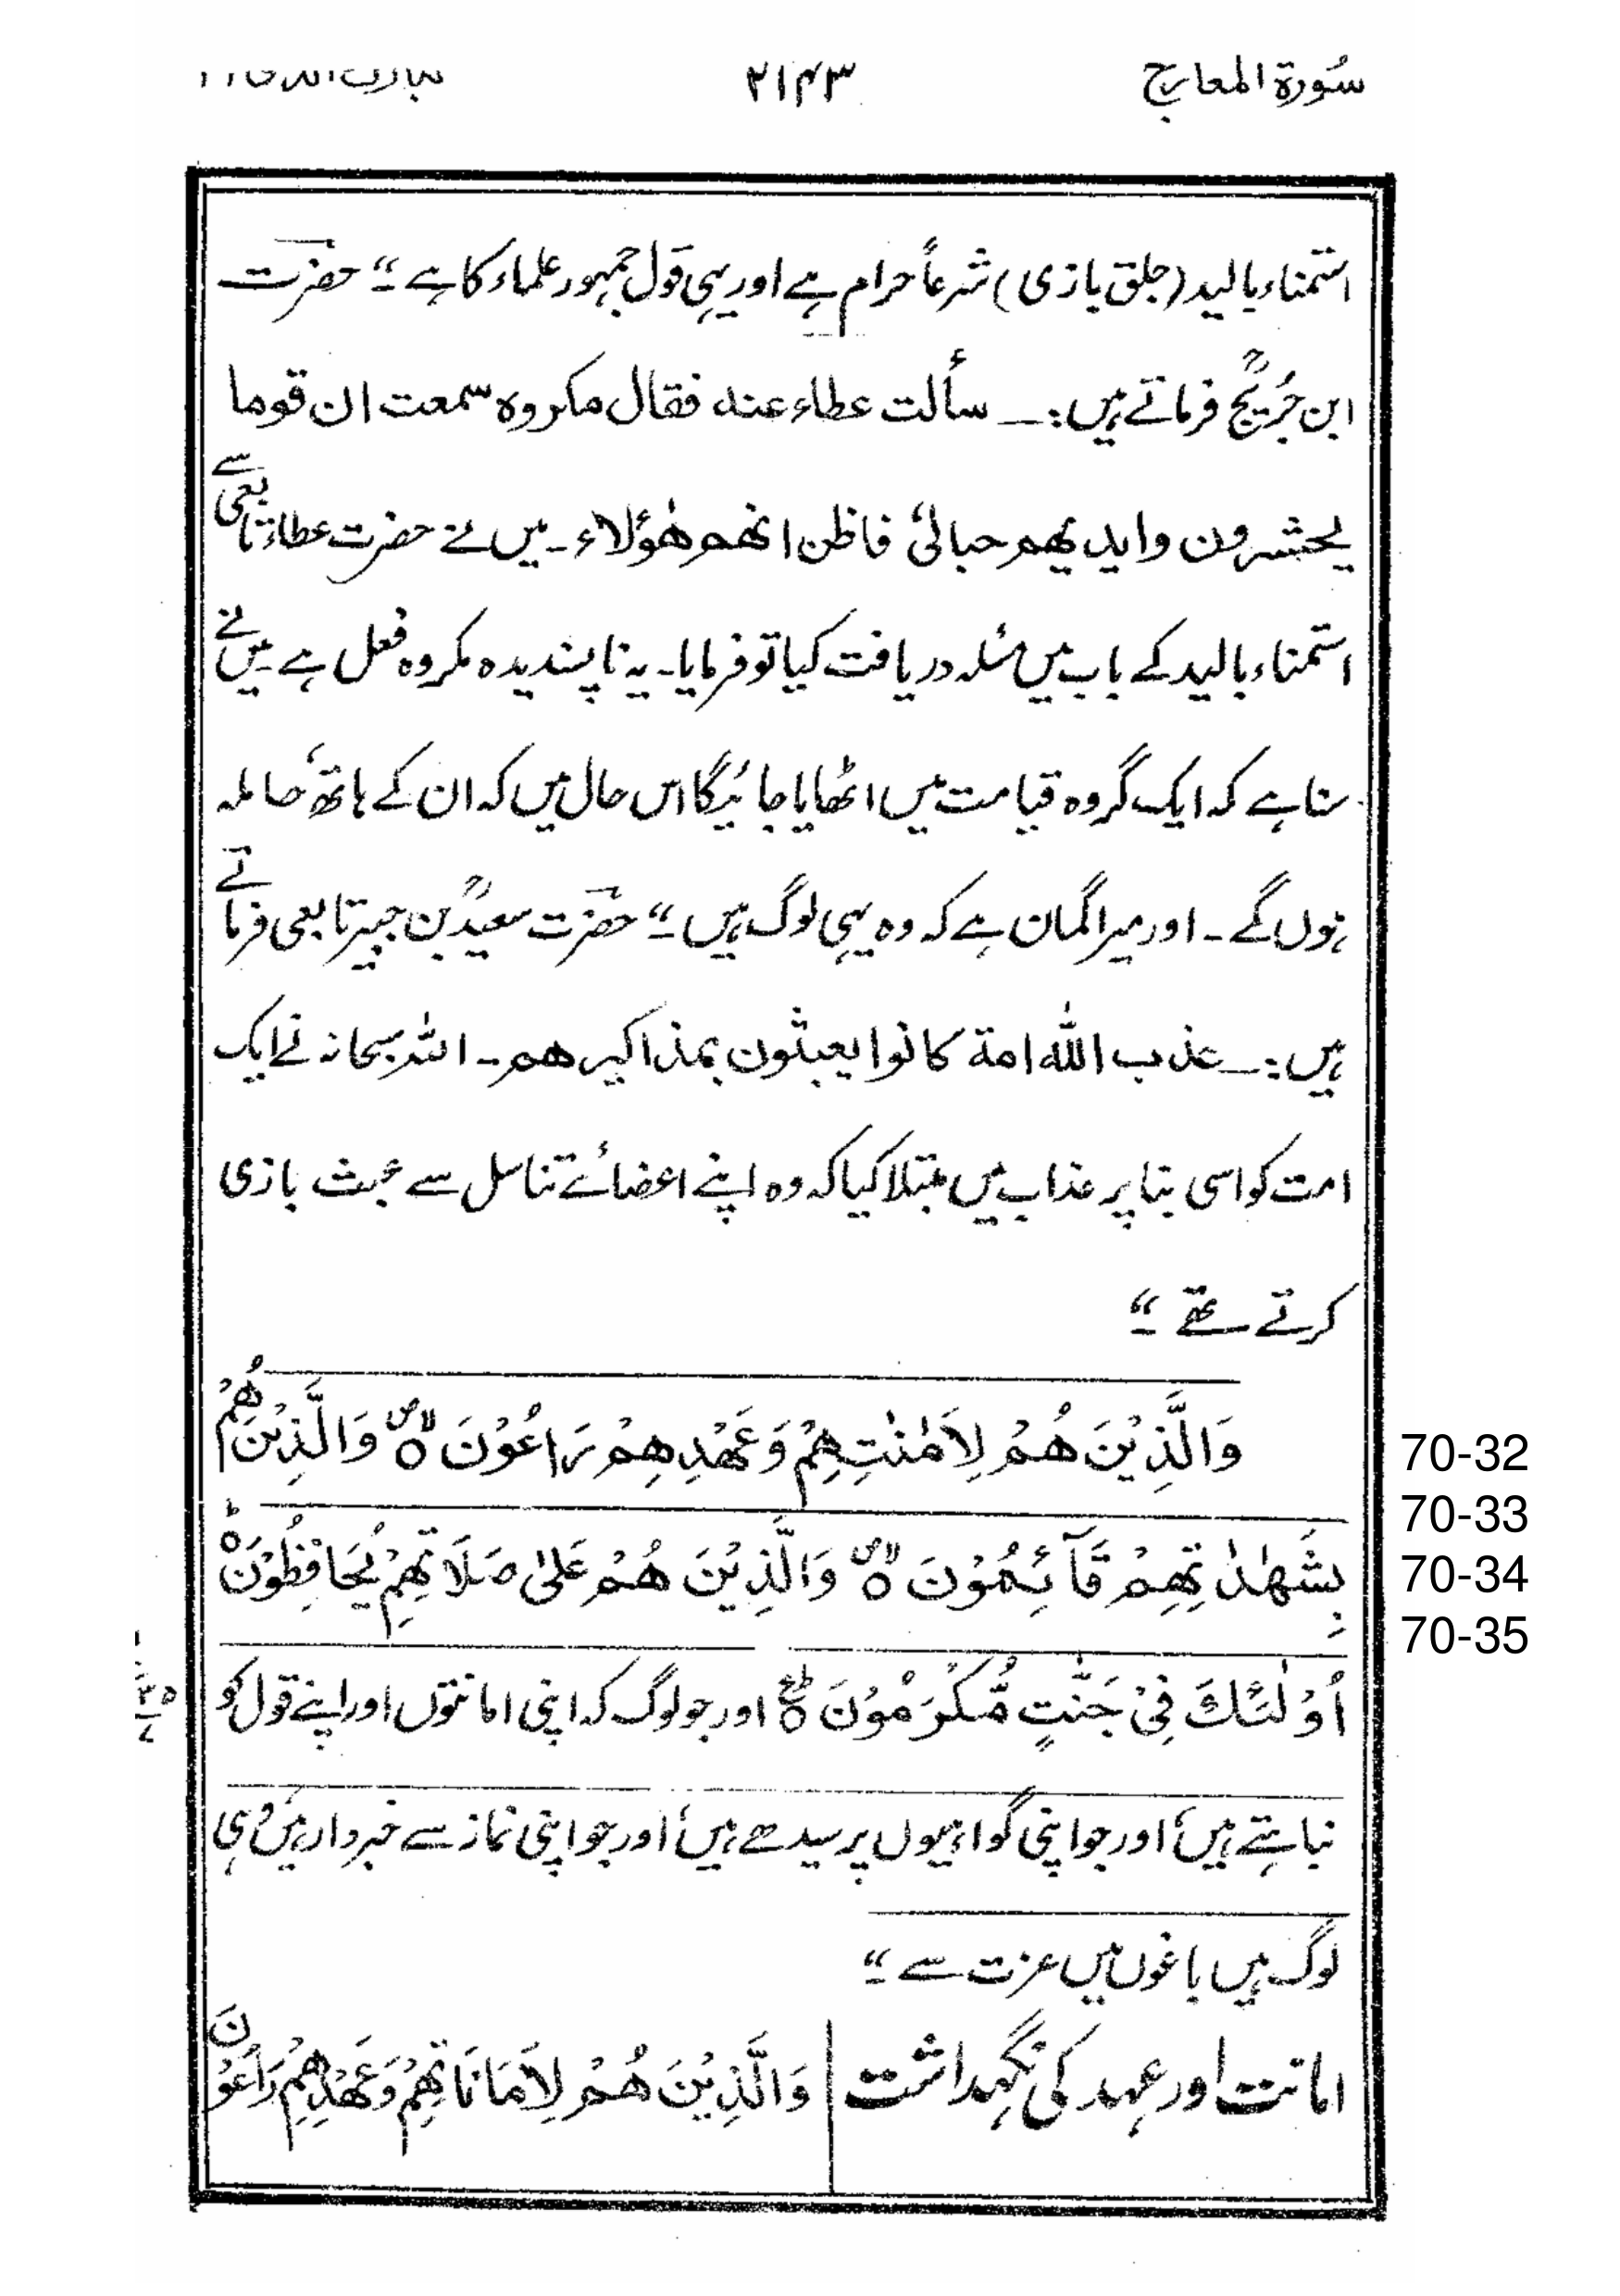 سُورة المعارج
۲۱۴۳
استمناء بالید (جلق بازی) شرعاً حرام ہے اور یہی قول جمہور علماء کا ہے ۔“ حضرت
ابن جُریجؒ فرماتے ہیں :۔ سألت عطاء عنه فقال مکروہ سمعت ان قوما
یحشرون وایدیهم حبالیٰ فاظن انهم هٰؤلاء ۔ میں نے حضرت عطاء تابعی سے
استمناء بالید کے باب میں مسئلہ دریافت کیا تو فرمایا ۔ یہ ناپسندیدہ مکروہ فعل ہے میں نے
سنا ہے کہ ایک گروہ قیامت میں اٹھایا جائیگا اس حال میں کہ ان کے ہاتھ حاملہ
ہوں گے ۔ اور میرا گمان ہے کہ وہ یہی لوگ ہیں ۔“ حضرت سعیدؒ بن جبیر تابعی فرماتے
ہیں :۔ عذب اللّٰه امة کانوا یعبثون بمذاکیرهم ۔ اللہ سبحانہ نے ایک
امت کو اسی بنا پر عذاب میں مبتلا کیا کہ وہ اپنے اعضائے تناسل سے عبث بازی
کرتے تھے ۔“
وَالَّذِیْنَ هُمْ لِاَمٰنٰتِهِمْ وَعَهْدِهِمْ رَاعُوْنَ ۝ وَالَّذِیْنَ هُمْ
70-32
70-33
بِشَهٰدٰتِهِمْ قَآئِمُوْنَ ۝ وَالَّذِیْنَ هُمْ عَلیٰ صَلَاتِهِمْ یُحَافِظُوْنَ ۝
70-34
70-35
اُوْلٰٓئِكَ فِیْ جَنّٰتٍ مُّكْرَمُوْنَ ۝ اور جو لوگ کہ اپنی امانتوں اور اپنے قول کو
نباہتے ہیں ، اور جو اپنی گواہیوں پر سیدھے ہیں ، اور جو اپنی نماز سے خبردار ہیں ، وہی
لوگ ہیں باغوں میں عزت سے ۔“
امانت اور عہد کی نگہداشت | وَالَّذِیْنَ هُمْ لِاَمَانَاتِهِمْ وَعَهْدِهِمْ رَاعُوْنَ